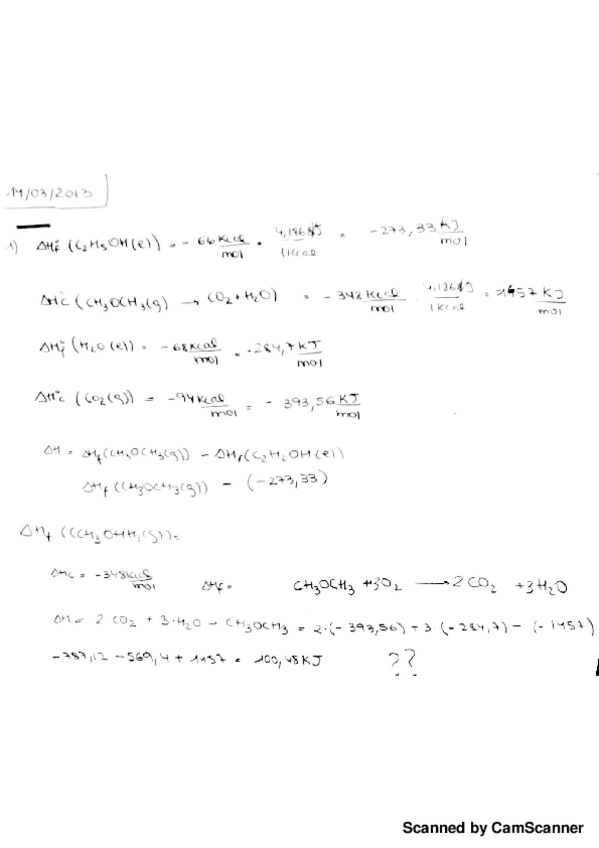 14/03/2013
1) ΔHf° (C2H5OH(l)) = - 66 Kcal/mol • 4,1868KJ/1Kcal = - 273,33 KJ/mol
ΔHc° (CH3OCH3(g) → CO2 + H2O) = - 348 Kcal/mol · 4,1868KJ/1Kcal = 1457 KJ/mol
ΔHf° (H2O(l)) = - 68 Kcal/mol = - 284,7 KJ/mol
ΔHc° (CO2(g)) = - 94 Kcal/mol = - 393,56 KJ/mol
ΔH = ΔHf(CH3OCH3(g)) - ΔHf(C2H2OH(l))
ΔHf (CH3OCH3(g)) - (-273,33)
ΔHf =
ΔHc = -348Kcal/mol ΔHf = CH3OCH3 + 3O2 → 2 CO2 + 3H2O
ΔH = 2 CO2 + 3·H2O - CH3OCH3 = 2·(- 393,56) + 3 (- 284,7) - (- 1457)
-787,12 - 569,4 + 1457 = 100,48KJ ??
Scanned by CamScanner